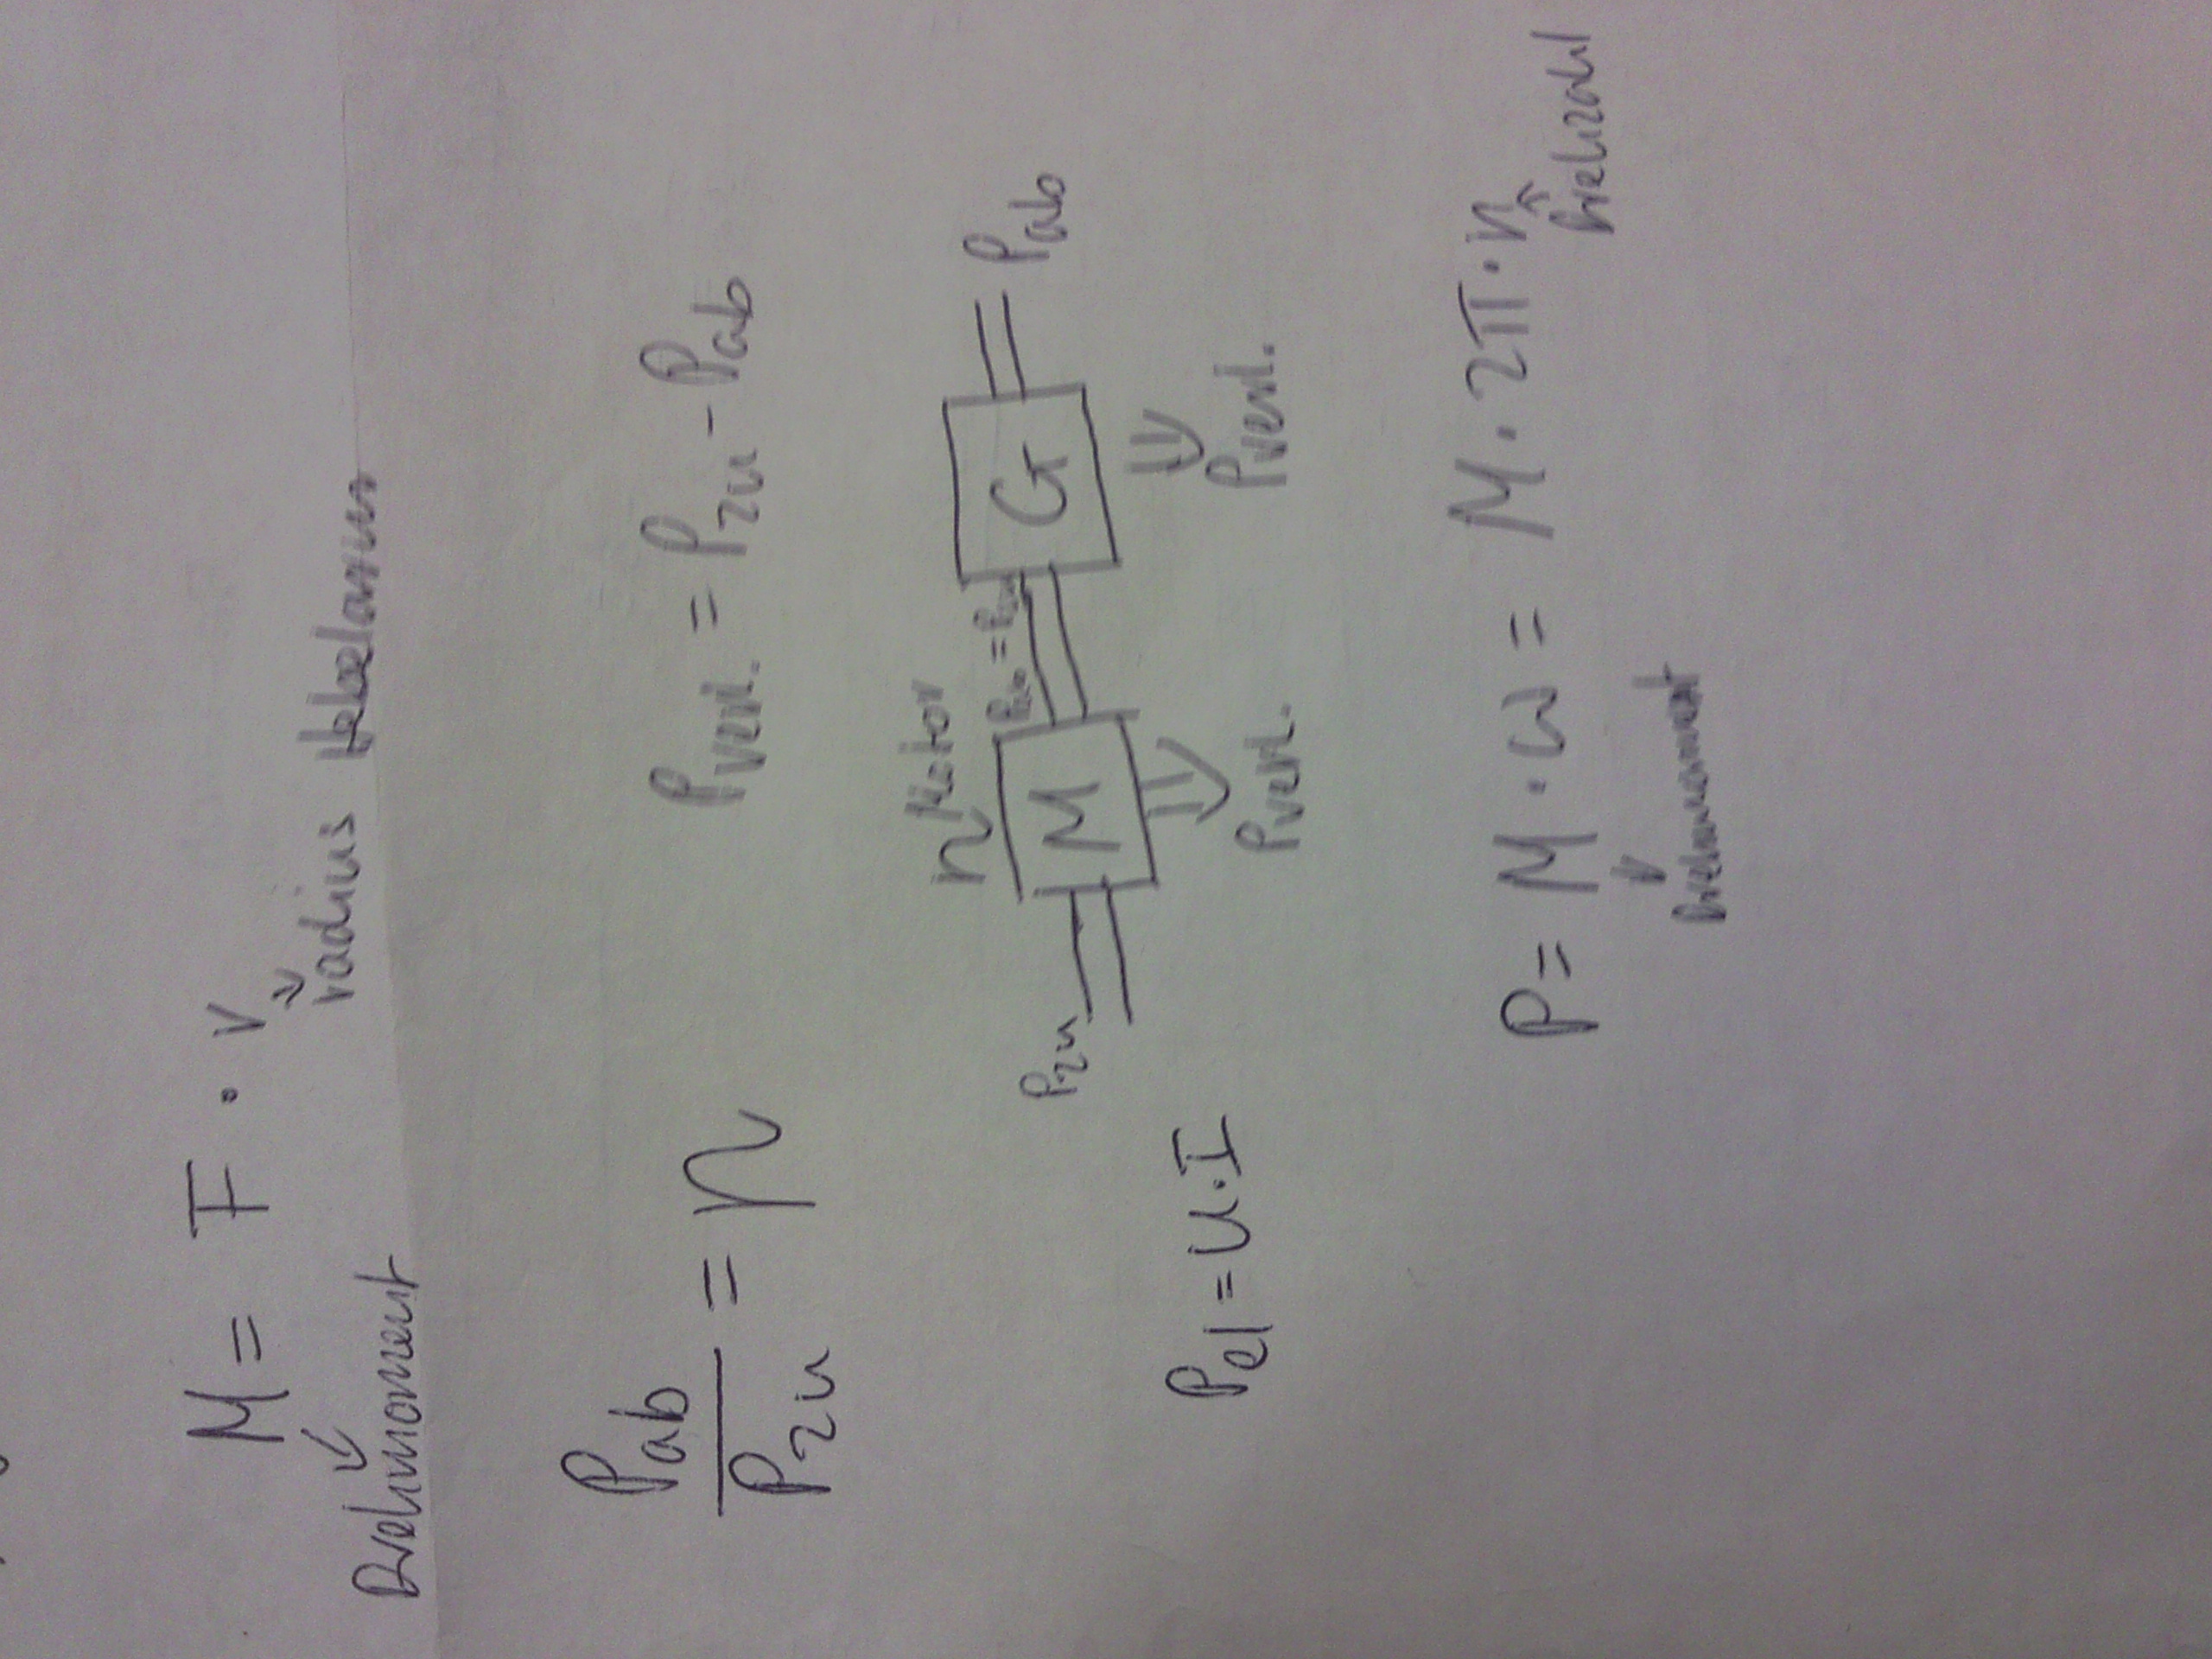 M = F · r
Drehmoment
radius Hebelarm
Pab / Pzu = η
Pverl. = Pzu - Pab
η Motor
Pzu M Pab = Pzu G Pab
Pverl. Pverl.
Pel = U·I
P = M · ω = M · 2π · n
Drehmoment
Drehzahl